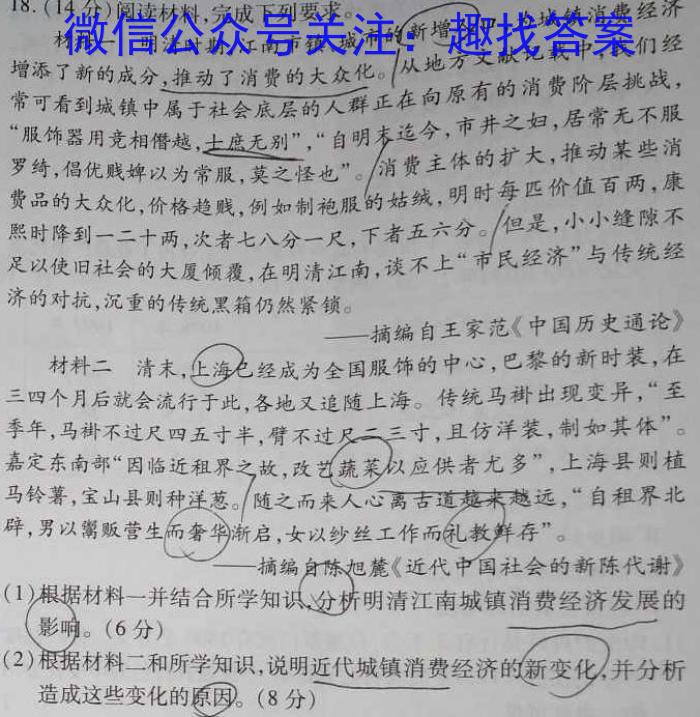 18.(14分)阅读材料,完成下列要求。
微信公众号关注：趣找答案
材料一 明清 江南市镇 城市的新增 城镇消费经济
增添了新的成分,推动了消费的大众化。从地方文献记载中,我们经
常可看到城镇中属于社会底层的人群正在向原有的消费阶层挑战,
“服饰器用竞相僭越,士庶无别”,“自明末迄今,市井之妇,居常无不服
罗绮,倡优贱婢以为常服,莫之怪也”。消费主体的扩大,推动某些消
费品的大众化,价格趋贱,例如制袍服的姑绒,明时每匹价值百两,康
熙时降到一二十两,次者七八分一尺,下者五六分。但是,小小缝隙不
足以使旧社会的大厦倾覆,在明清江南,谈不上“市民经济”与传统经
济的对抗,沉重的传统黑箱仍然紧锁。
——摘编自王家范《中国历史通论》
材料二 清末,上海已经成为全国服饰的中心,巴黎的新时装,在
三四个月后就会流行于此,各地又追随上海。传统马褂出现变异,“至
季年,马褂不过尺四五寸半,臂不过尺二三寸,且仿洋装,制如其体”。
嘉定东南部“因临近租界之故,改艺蔬菜以应供者尤多”,上海县则植
马铃薯,宝山县则种洋葱。随之而来人心离古道越来越远,“自租界北
辟,男以鬻贩营生而奢华渐启,女以纱丝工作而礼教鲜存”。
——摘编自陈旭麓《近代中国社会的新陈代谢》
(1)根据材料一并结合所学知识,分析明清江南城镇消费经济发展的
影响。(6分)
(2)根据材料二和所学知识,说明近代城镇消费经济的新变化,并分析
造成这些变化的原因。(8分)